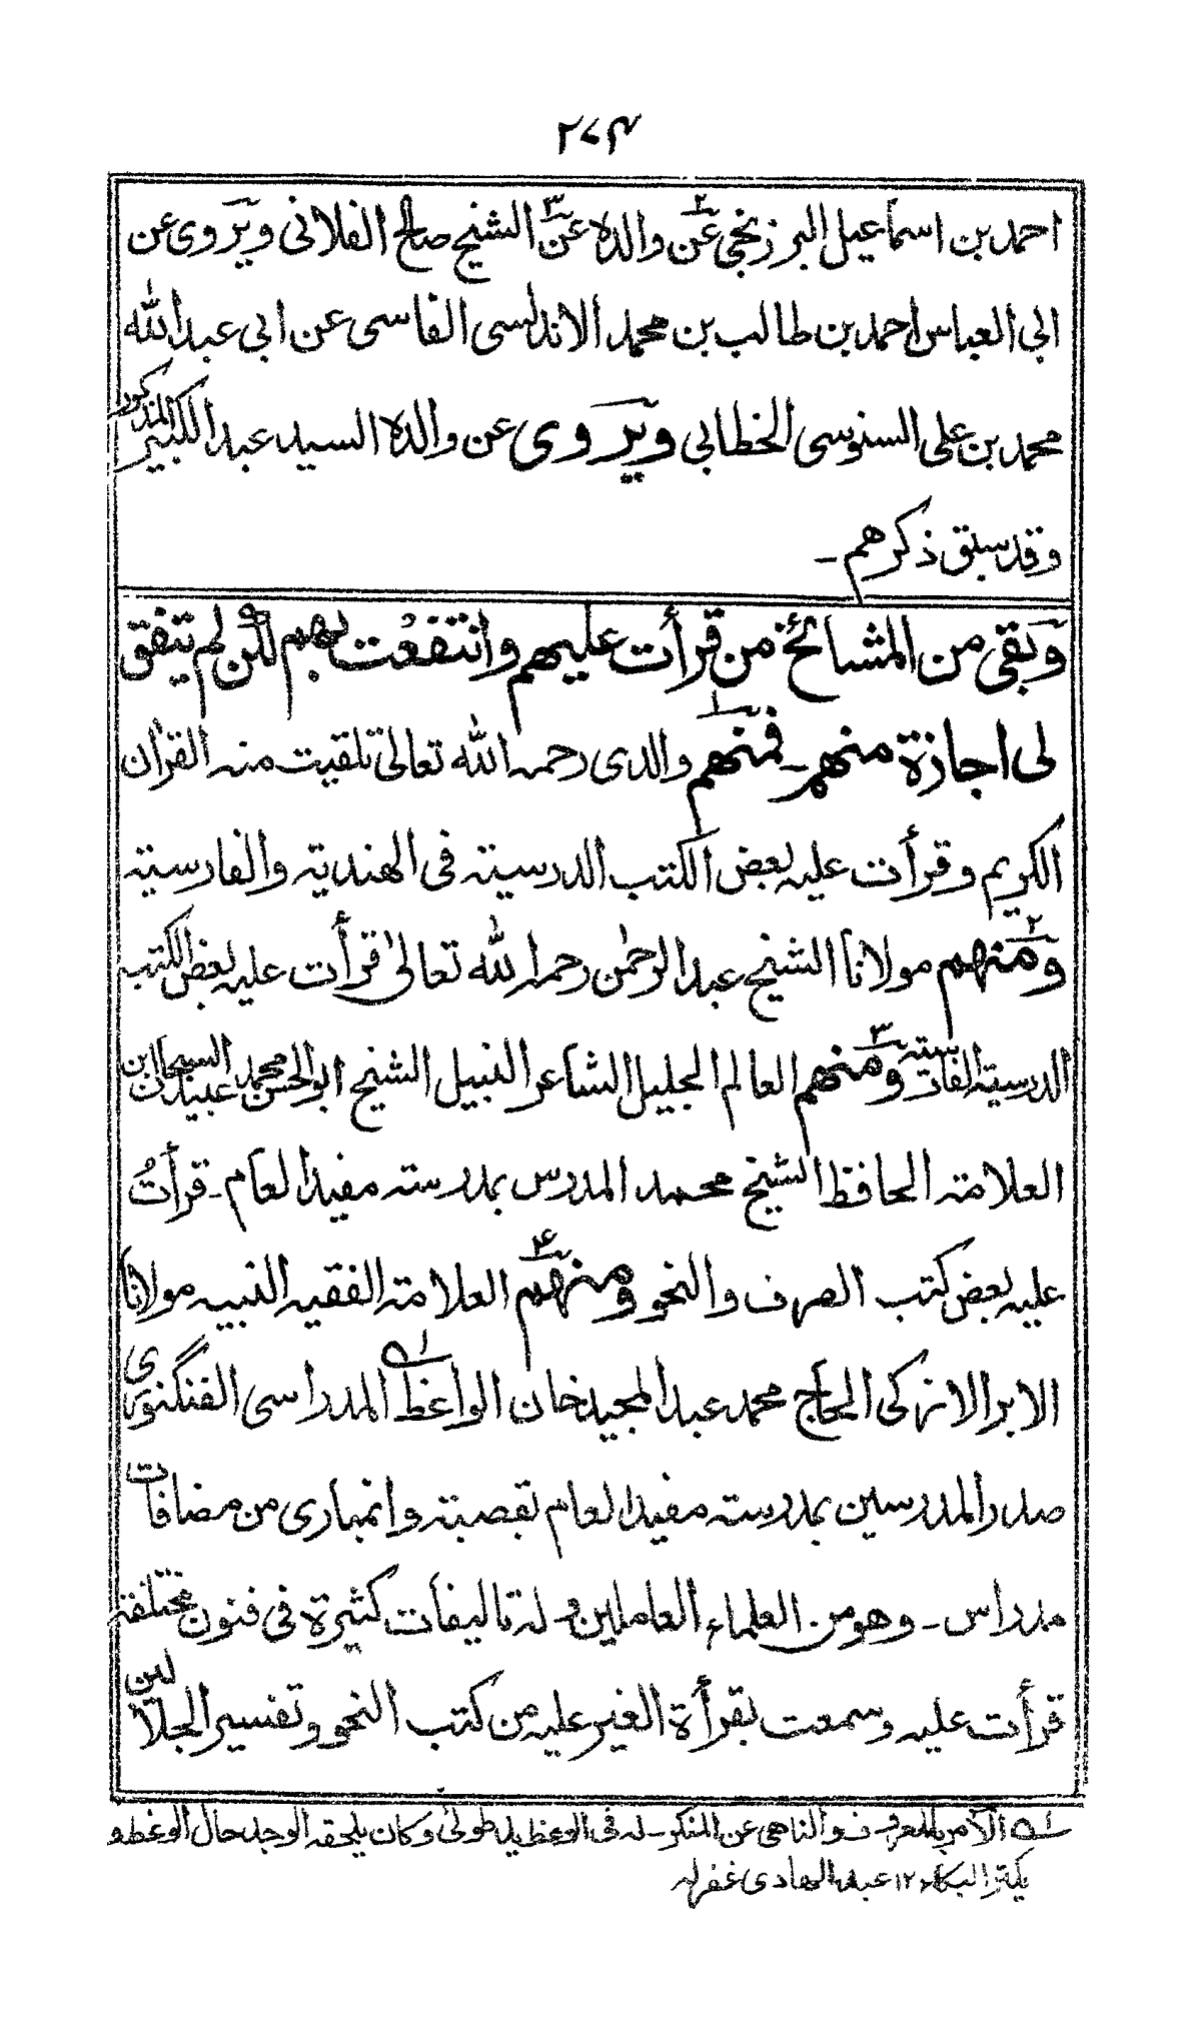 ٢٧٤
احمد بن اسماعيل البرزنجى عن٢ والده عن٣ الشيخ صالح الفلانى ويروى عن
ابى العباس احمد بن طالب بن محمد الاندلسى الفاسى عن ابى عبد الله
محمد بن على السنوسى الخطابى ويروى عن والده السيد عبد الكبير المذكور
وقد سبق ذكرهم ـ
وبقى من المشائخ من قرأت عليهم وانتفعت بهم لكن لم يتفق
لى اجازة منهم ـ فمنهم١ والدى رحمه الله تعالى تلقيت منه القرأن
الكريم وقرأت عليه بعض الكتب الدرسية فى الهندية والفارسية
ومنهم٢ مولانا الشيخ عبد الرحمٰن رحمه الله تعالىٰ قرأت عليه بعض الكتب
الدرسية الفارسية ومنهم٣ العالم الجليل الشاعر النبيل الشيخ ابو الحسن محمد عبيد السبحان بن
العلامة الحافظ الشيخ محمد المدرس بمدرسة مفيد العام ـ قرأتُ
عليه بعض كتب الصرف والنحو ومنهم٤ العلامة الفقيه النبيه مولانا
الابر الازكى الحاج محمد عبد المجيد خان الواعظ١ه المدراسى الفنگنورى
صدر المدرسين بمدرسة مفيد العام بقصبة وانمبارى من مضافات
مدراس ـ وهو من العلماء العاملين و له تاليفات كثيرة فى فنون مختلفة
قرأت عليه وسمعت بقرأة الغير عليه من كتب النحو وتفسير الجلالين
١ه الآمر بالمعروف والناهى عن المنكر ـ له فى الوعظ يد طولىٰ وكان يلحقه الوجد حال الوعظ و
يكثر البكاء ١٢ عبد الهادى غفر له